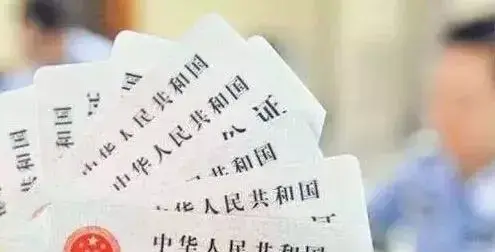 证
中华人民共和国
中华人民共和国
证
华人民共和国
华人民共和国
中华人民共和国